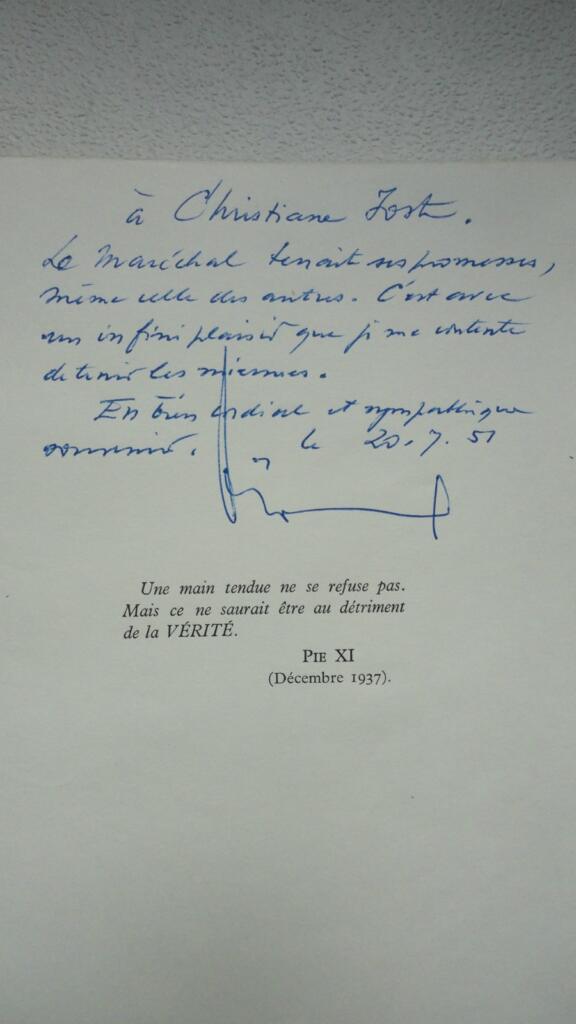 à Christiane Jost.
Le Maréchal tenait ses promesses,
même celle des autres. C'est avec
un infini plaisir que je me contente
de tenir les miennes.
En très cordial et sympathique
souvenir. le 20.7.51
Une main tendue ne se refuse pas.
Mais ce ne saurait être au détriment
de la VÉRITÉ.
PIE XI
(Décembre 1937).